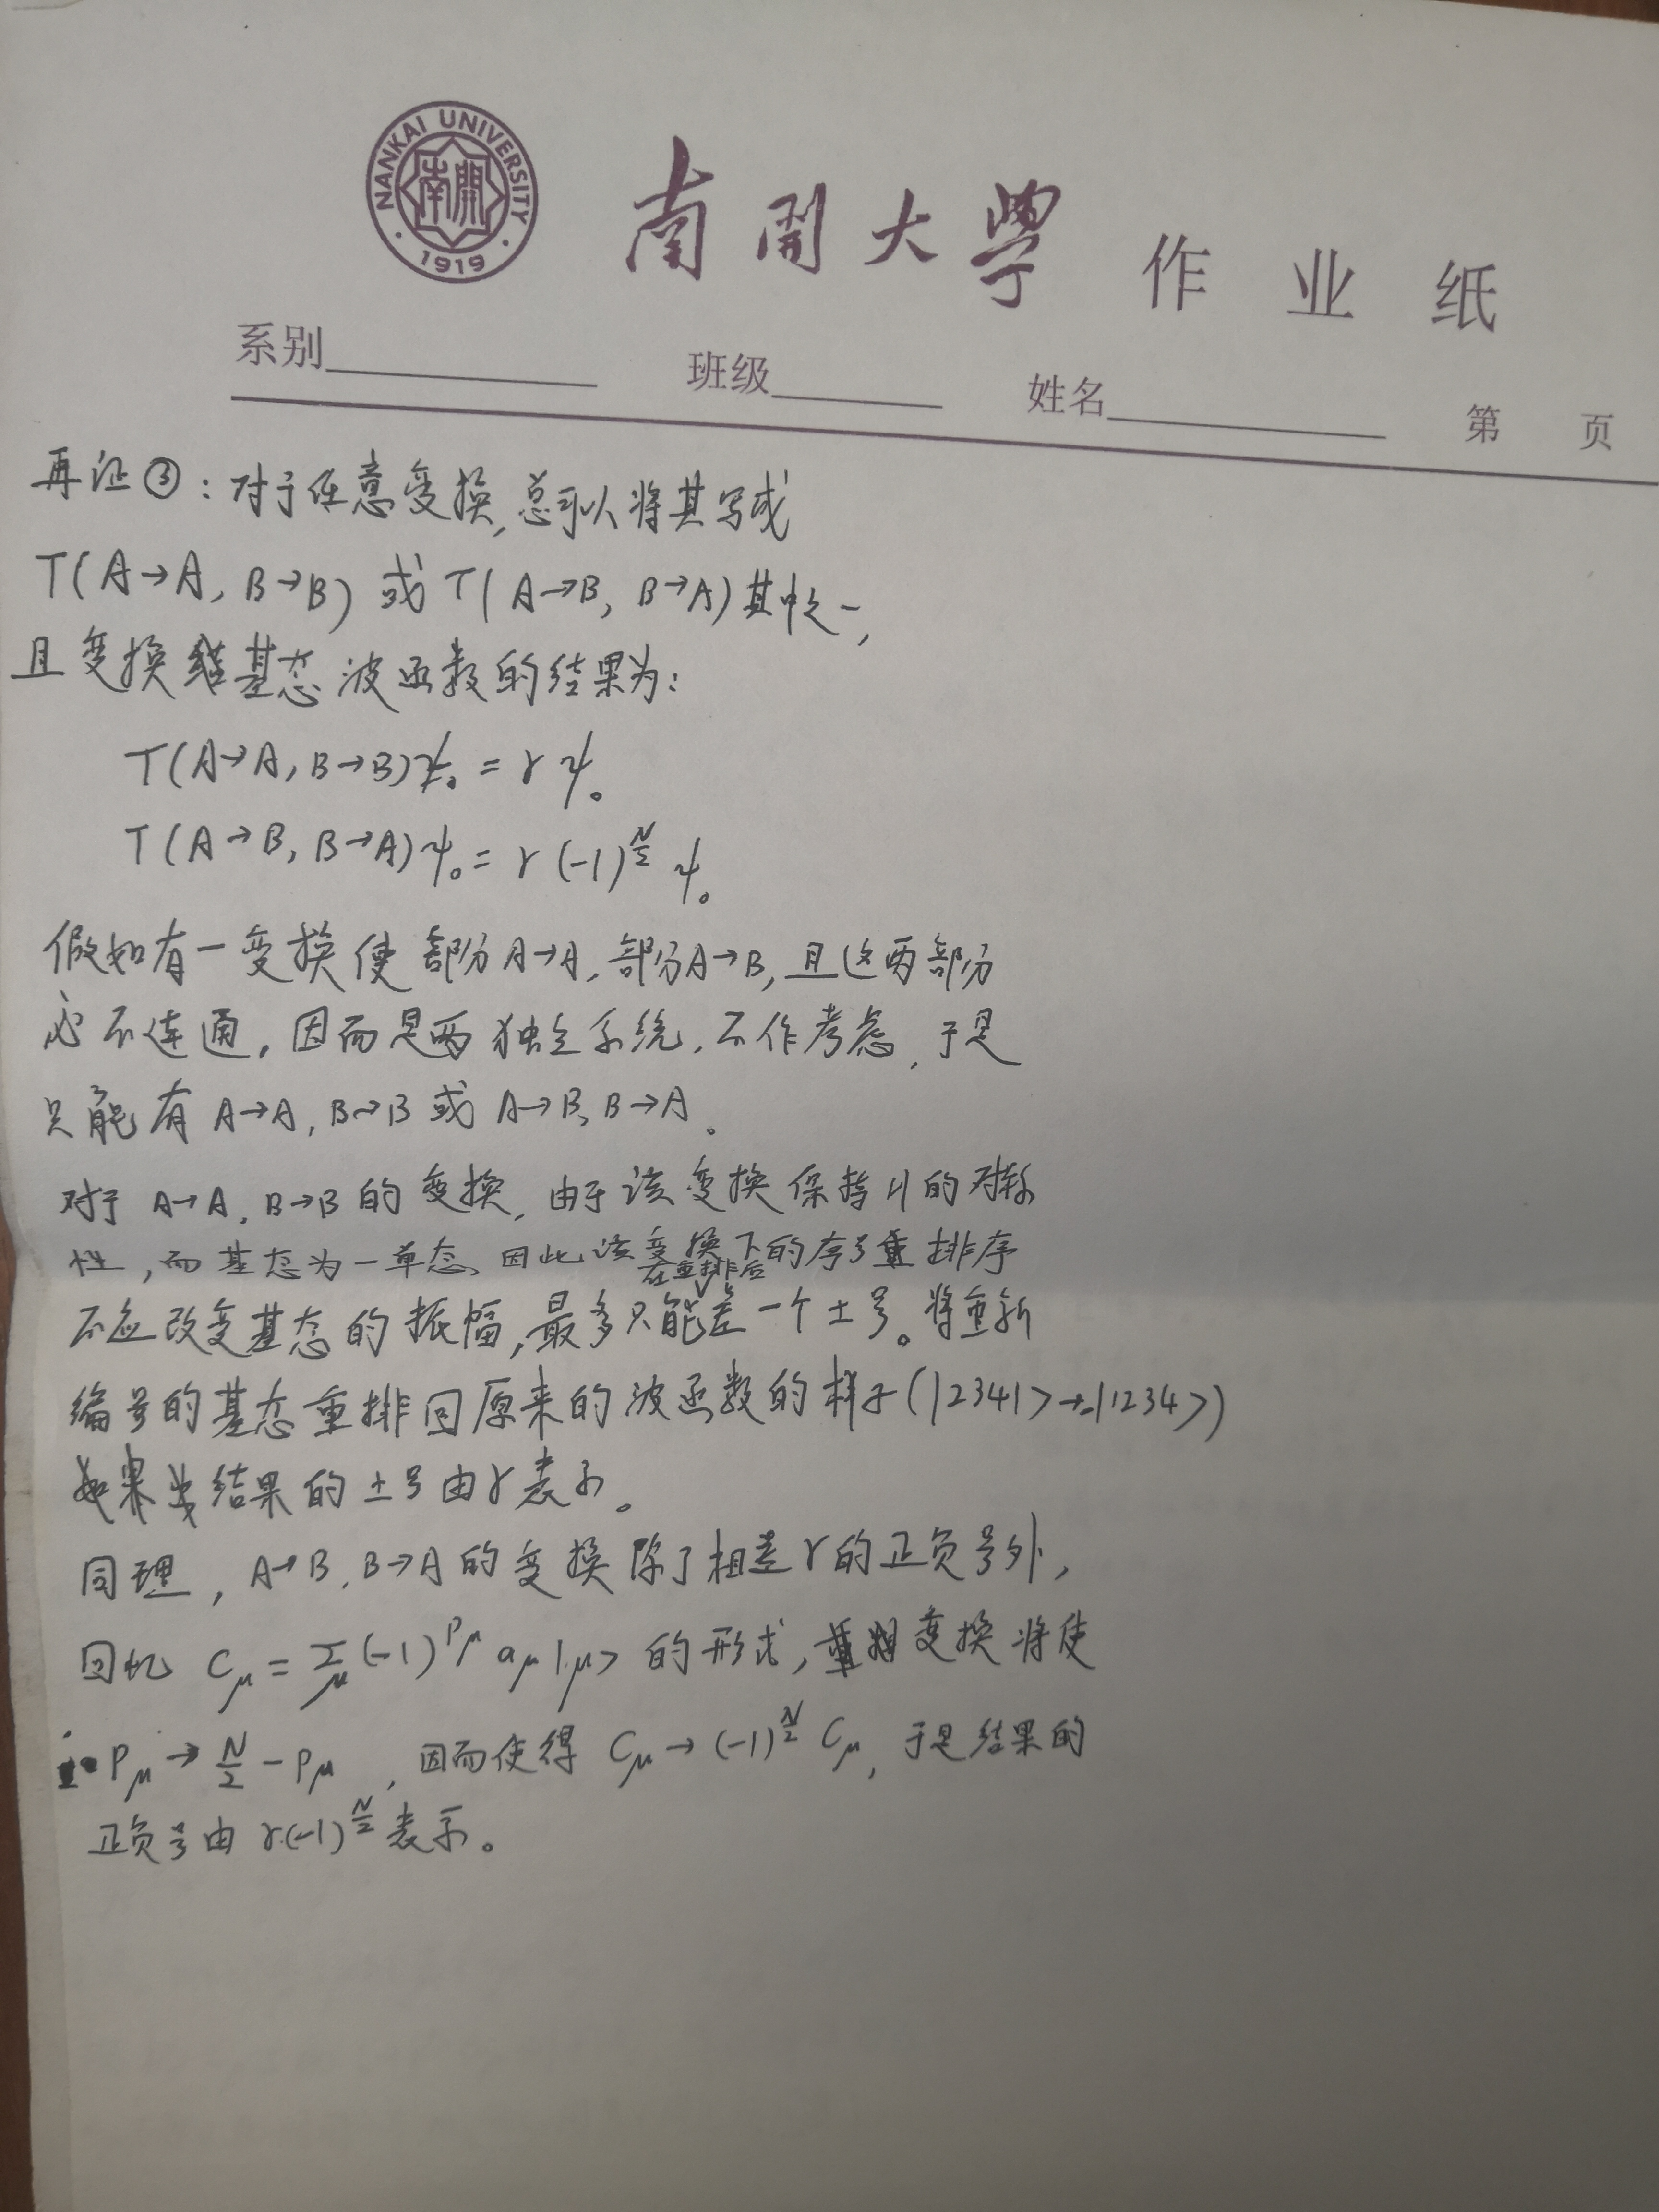 NANKAI UNIVERSITY
南開
· 1919 ·
南開大學 作业纸
系别 班级 姓名 第 页
再证③:对于任意变换,总可以将其写成
T(A→A, B→B) 或 T(A→B, B→A)其中之一,
且变换基态波函数的结果为:
T(A→A, B→B)ψ₀ = γψ₀
T(A→B, B→A)ψ₀ = γ(-1)^{N/2} ψ₀
假如有一变换使部分A→A,部分A→B,且这两部分
必不连通,因而是两独立系统,不作考虑,于是
只能有 A→A, B→B 或 A→B, B→A。
对于 A→A, B→B 的变换,由于该变换保持H的对称
性,而基态为一单态,因此该变换下的序号重排序
在重排后
不应改变基态的振幅,最多只能差一个±号。将重新
编号的基态重排回原来的波函数的样子(|2341>→|1234>)
结果的±号由γ表示。
同理,A→B, B→A的变换除了相差γ的正负号外,
因此 Cμ = Σ_μ (-1)^{Pμ} aμ |μ> 的形式,变换将使
Pμ → N/2 - Pμ,因而使得 Cμ → (-1)^{N/2} Cμ,于是结果的
正负号由 γ·(-1)^{N/2} 表示。